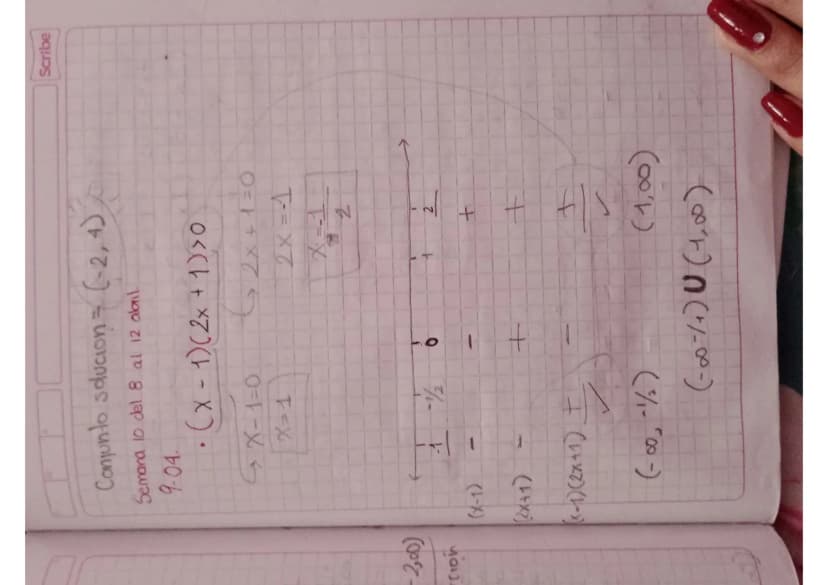 Scribe
Conjunto solucion = (-2, 1)
Semana 10 del 8 al 12 abril
9-04.
• (x - 1)(2x + 1) > 0
↪ x - 1 = 0 ↪ 2x + 1 = 0
x = 1 2x = -1
x = -1/2
-1 -1/2 0 1 2
(x-1) - - +
(2x+1) - + +
(x-1)(2x+1) + - +
✓ ✓
(-∞, -1/2) (1, ∞)
(-∞ -1/1) U (-1, ∞)
-2, ∞)
ción